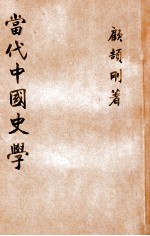 顧頡剛著
當代中國史學